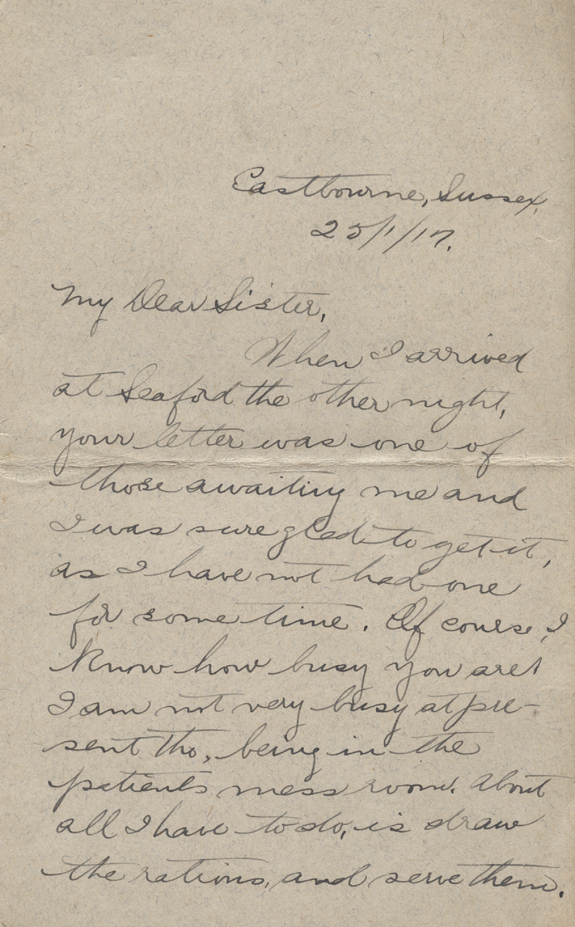 Eastbourne, Sussex,
25/1/17.
My Dear Sister,
When I arrived
at Seaford the other night,
your letter was one of
those awaiting me and
I was sure glad to get it,
as I have not had one
for some time. Of course I
know how busy you are!
I am not very busy at pre-
sent tho, being in the
patients mess room. About
all I have to do, is draw
the rations, and serve them.